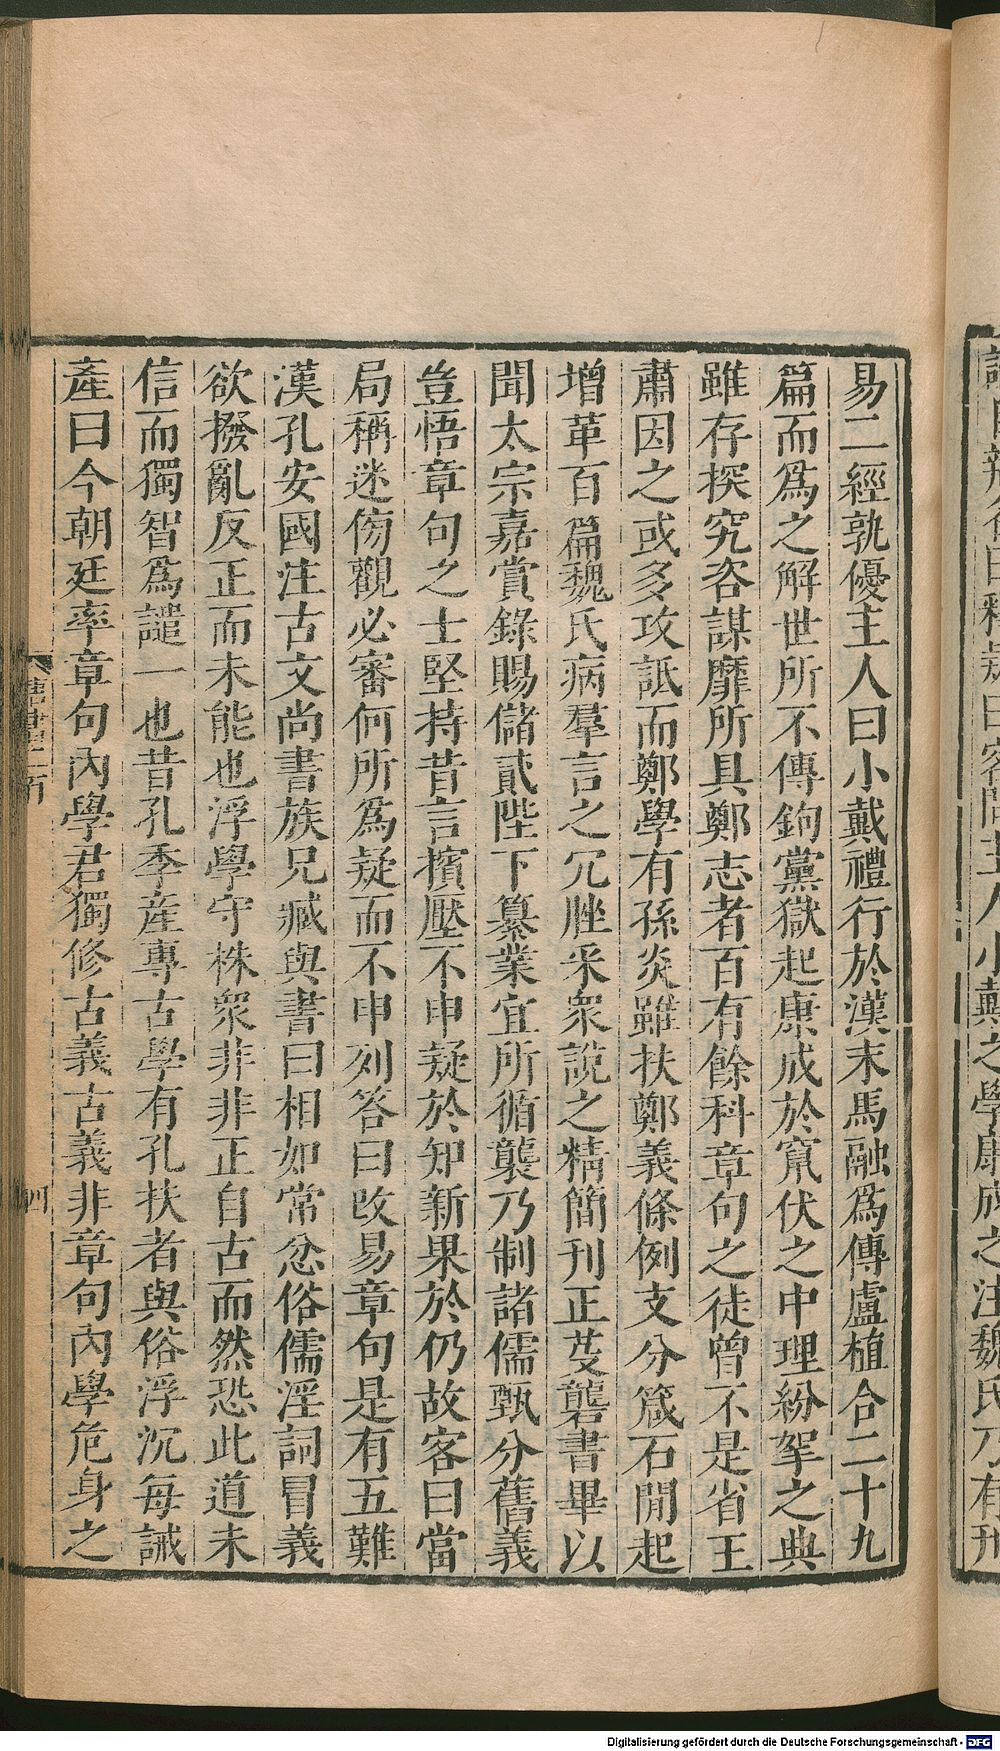 易二經孰優主人曰小戴禮行於漢末馬融爲傳盧植合二十九
篇而爲之解世所不傳鉤黨獄起康成於竄伏之中理紛挐之典
雖存探究咨謀靡所具鄭志者百有餘科章句之徒曾不是省王
肅因之或多攻詆而鄭學有孫炎雖扶鄭義條例支分箴石閒起
增革百篇魏氏病羣言之冗脞采衆說之精簡刊正芟礱書畢以
聞太宗嘉賞錄賜儲貳陛下纂業宜所循襲乃制諸儒甄分舊義
豈悟章句之士堅持昔言擯壓不申疑於知新果於仍故客曰當
局稱迷傍觀必審何所爲疑而不申列答曰改易章句是有五難
漢孔安國注古文尚書族兄臧與書曰相如常忿俗儒淫詞冒義
欲撥亂反正而未能也浮學守株衆非非正自古而然恐此道未
信而獨智爲譴一也昔孔季產專古學有孔扶者與俗浮沉每誡
產曰今朝廷率章句內學君獨修古義古義非章句內學危身之
唐書二百
四
Digitalisierung gefördert durch die Deutsche Forschungsgemeinschaft - DFG